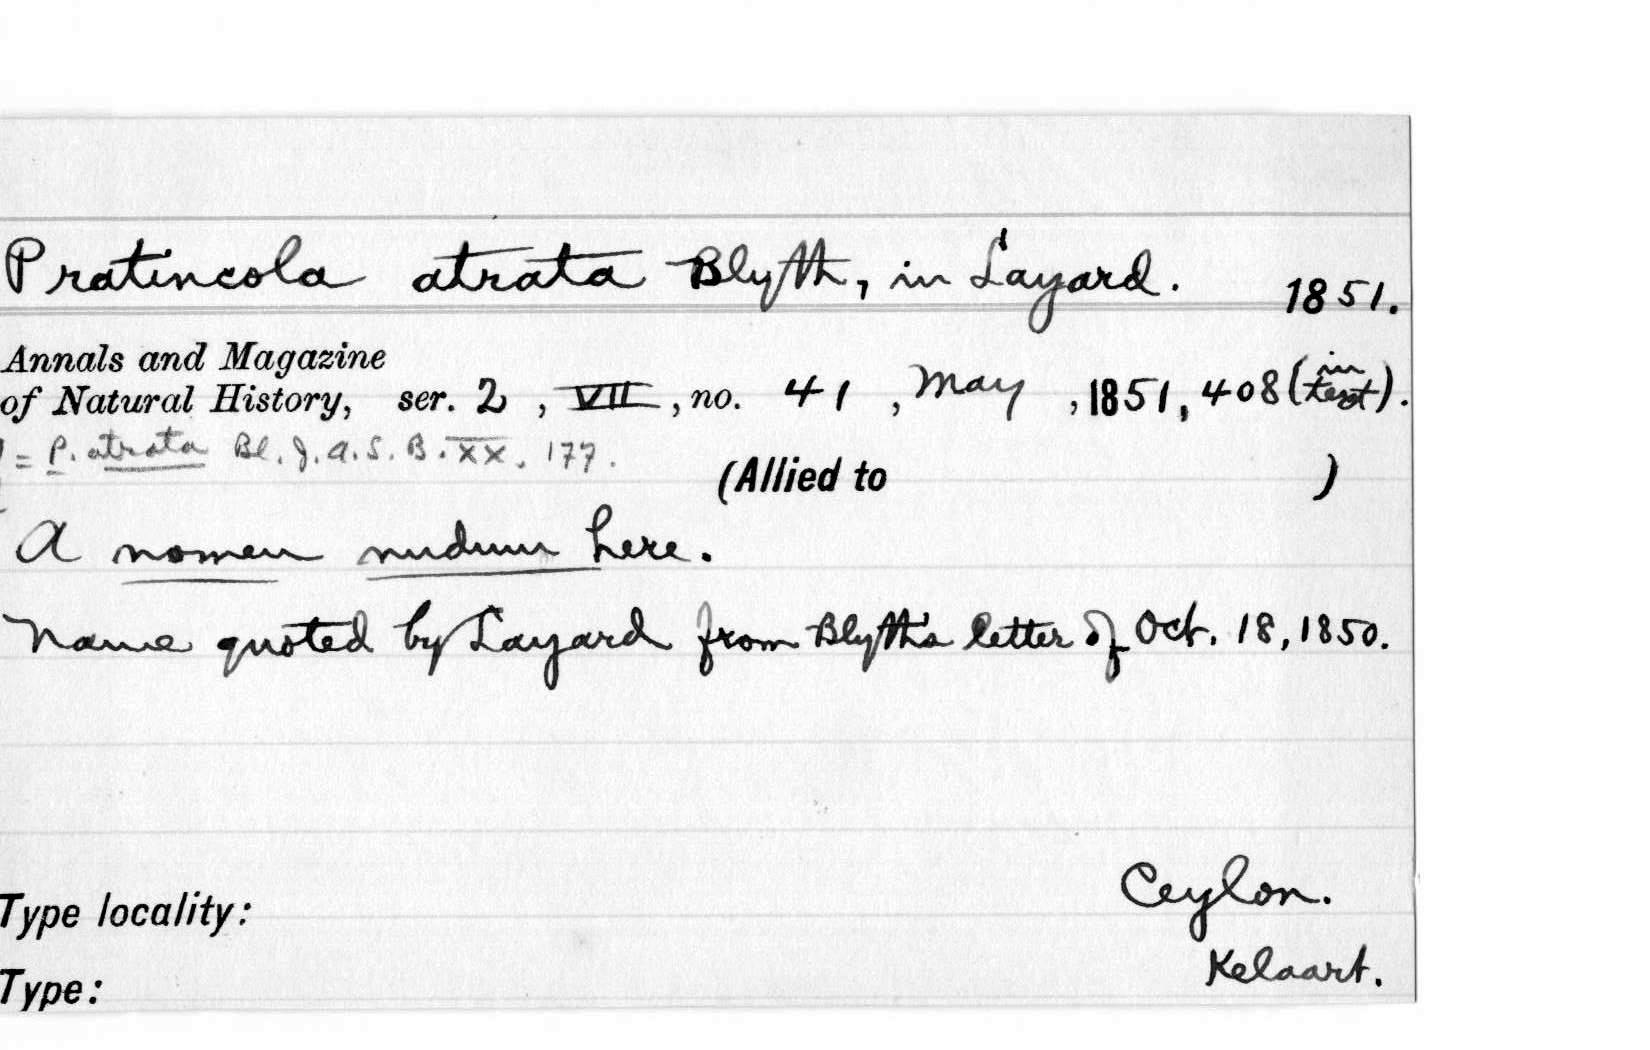 Pratincola atrata Blyth, in Layard. 1851.
Annals and Magazine
of Natural History, ser. 2, VII, no. 41, May, 1851, 408 (in text).
= P. atrata Bl. J.A.S.B. XX. 177.
(Allied to )
A nomen nudum here.
Name quoted by Layard from Blyth's letter of Oct. 18, 1850.
Type locality: Ceylon.
Type: Kelaart.